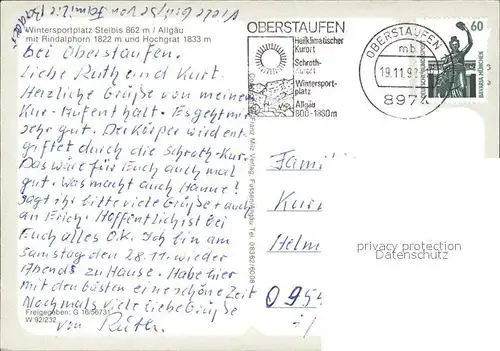 Viele Grüße von Familie
Wintersportplatz Steibis 862 m / Allgäu
mit Rindalphorn 1822 m und Hochgrat 1833 m
bei Oberstaufen.
Liebe Ruth und Kurt.
Herzliche Grüße von meinem
Kur-Aufenthalt. Es geht mir
sehr gut. Der Körper wird ent-
giftet durch die Schroth-Kur.
Das wäre für Euch auch mal
gut. Was macht auch Hanne?
Sagt ihr bitte viele Grüße + auch
an Erich. Hoffentlich ist bei
Euch alles O.K. Ich bin am
Samstag den 28.11. wieder
Abends zu Hause. Habe hier
mit den besten eine schöne Zeit
Nochmals viele liebe Grüße
von Ruth.
Freigegeben: G 16/56731
W 92/232
Franz Milz Verlag, Füssen/Allgäu Tel. 08362/6008
OBERSTAUFEN
Heilklimatischer
Kurort
Schroth-
kurort
Wintersport-
platz
Allgäu
800-1880m
OBERSTAUFEN
mb
19.11.92
897
60
BAVARIA MÜNCHEN
Fami
Kur
Helm
0954
privacy protection
Datenschutz